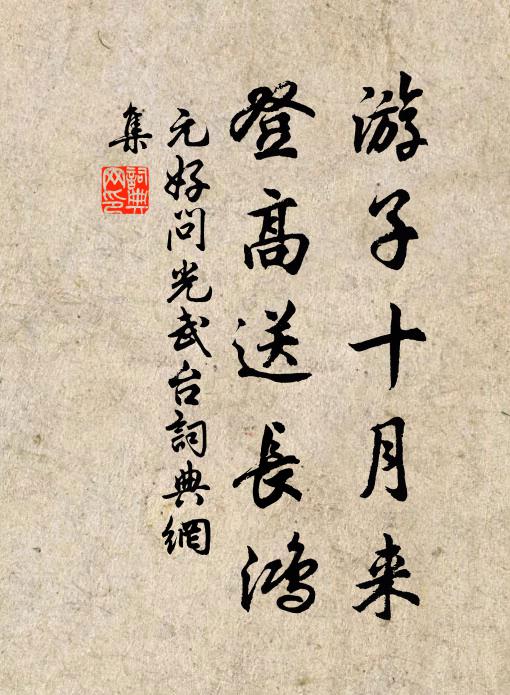 游子十月来
登高送長鴻
元好问光武台詞典網
集
詞典
网印